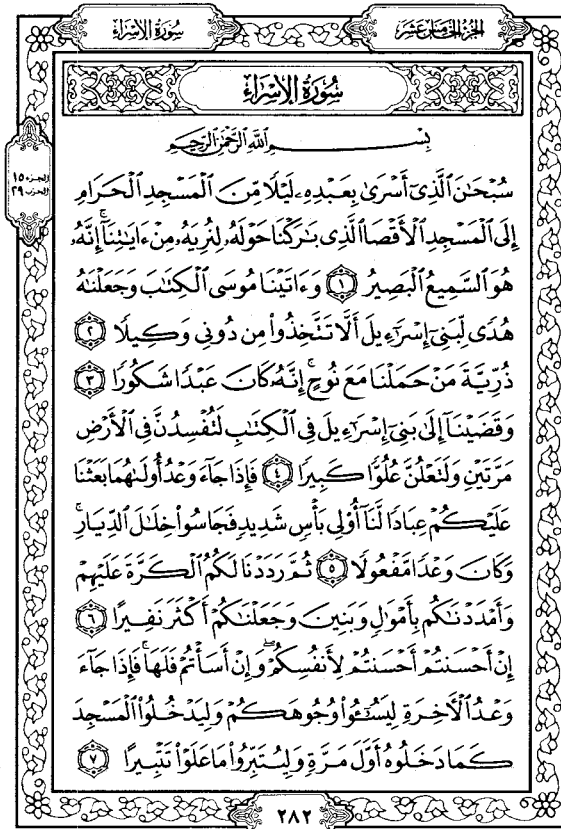 سُورَةُ الإِسۡرَاءِ
الجُزْءُ الخَامِسَ عَشَرَ
سُورَةُ الإِسۡرَاءِ
الجزء ١٥
الحزب ٢٩
بِسۡمِ ٱللَّهِ ٱلرَّحۡمَٰنِ ٱلرَّحِيمِ
سُبۡحَٰنَ ٱلَّذِيٓ أَسۡرَىٰ بِعَبۡدِهِۦ لَيۡلٗا مِّنَ ٱلۡمَسۡجِدِ ٱلۡحَرَامِ
إِلَى ٱلۡمَسۡجِدِ ٱلۡأَقۡصَا ٱلَّذِي بَٰرَكۡنَا حَوۡلَهُۥ لِنُرِيَهُۥ مِنۡ ءَايَٰتِنَآۚ إِنَّهُۥ
هُوَ ٱلسَّمِيعُ ٱلۡبَصِيرُ ١ وَءَاتَيۡنَا مُوسَى ٱلۡكِتَٰبَ وَجَعَلۡنَٰهُ
هُدٗى لِّبَنِيٓ إِسۡرَٰٓءِيلَ أَلَّا تَتَّخِذُواْ مِن دُونِي وَكِيلٗا ٢
ذُرِّيَّةَ مَنۡ حَمَلۡنَا مَعَ نُوحٍۚ إِنَّهُۥ كَانَ عَبۡدٗا شَكُورٗا ٣
وَقَضَيۡنَآ إِلَىٰ بَنِيٓ إِسۡرَٰٓءِيلَ فِي ٱلۡكِتَٰبِ لَتُفۡسِدُنَّ فِي ٱلۡأَرۡضِ
مَرَّتَيۡنِ وَلَتَعۡلُنَّ عُلُوّٗا كَبِيرٗا ٤ فَإِذَا جَآءَ وَعۡدُ أُولَىٰهُمَا بَعَثۡنَا
عَلَيۡكُمۡ عِبَادٗا لَّنَآ أُوْلِي بَأۡسٖ شَدِيدٖ فَجَاسُواْ خِلَٰلَ ٱلدِّيَارِۚ
وَكَانَ وَعۡدٗا مَّفۡعُولٗا ٥ ثُمَّ رَدَدۡنَا لَكُمُ ٱلۡكَرَّةَ عَلَيۡهِمۡ
وَأَمۡدَدۡنَٰكُم بِأَمۡوَٰلٖ وَبَنِينَ وَجَعَلۡنَٰكُمۡ أَكۡثَرَ نَفِيرًا ٦
إِنۡ أَحۡسَنتُمۡ أَحۡسَنتُمۡ لِأَنفُسِكُمۡۖ وَإِنۡ أَسَأۡتُمۡ فَلَهَاۚ فَإِذَا جَآءَ
وَعۡدُ ٱلۡأٓخِرَةِ لِيَسُـُٔواْ وُجُوهَكُمۡ وَلِيَدۡخُلُواْ ٱلۡمَسۡجِدَ
كَمَا دَخَلُوهُ أَوَّلَ مَرَّةٖ وَلِيُتَبِّرُواْ مَا عَلَوۡاْ تَتۡبِيرًا ٧
٢٨٢